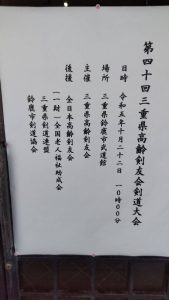 第四十回三重県高齢剣友会剣道大会
日時 令和五年十月二十二日 一〇時〇〇分
場所 三重県鈴鹿市武道館
主催 三重県高齢剣友会
後援 全日本高齢剣友会
(一財)全国老人福祉助成会
三重県剣道連盟
鈴鹿市剣道協会